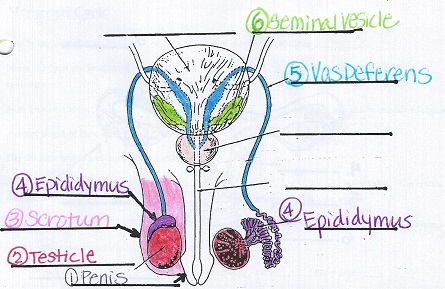 ⑥ Seminal Vesicle
⑤ Vas Deferens
④ Epididymus
③ Scrotum
② Testicle
① Penis
④ Epididymus